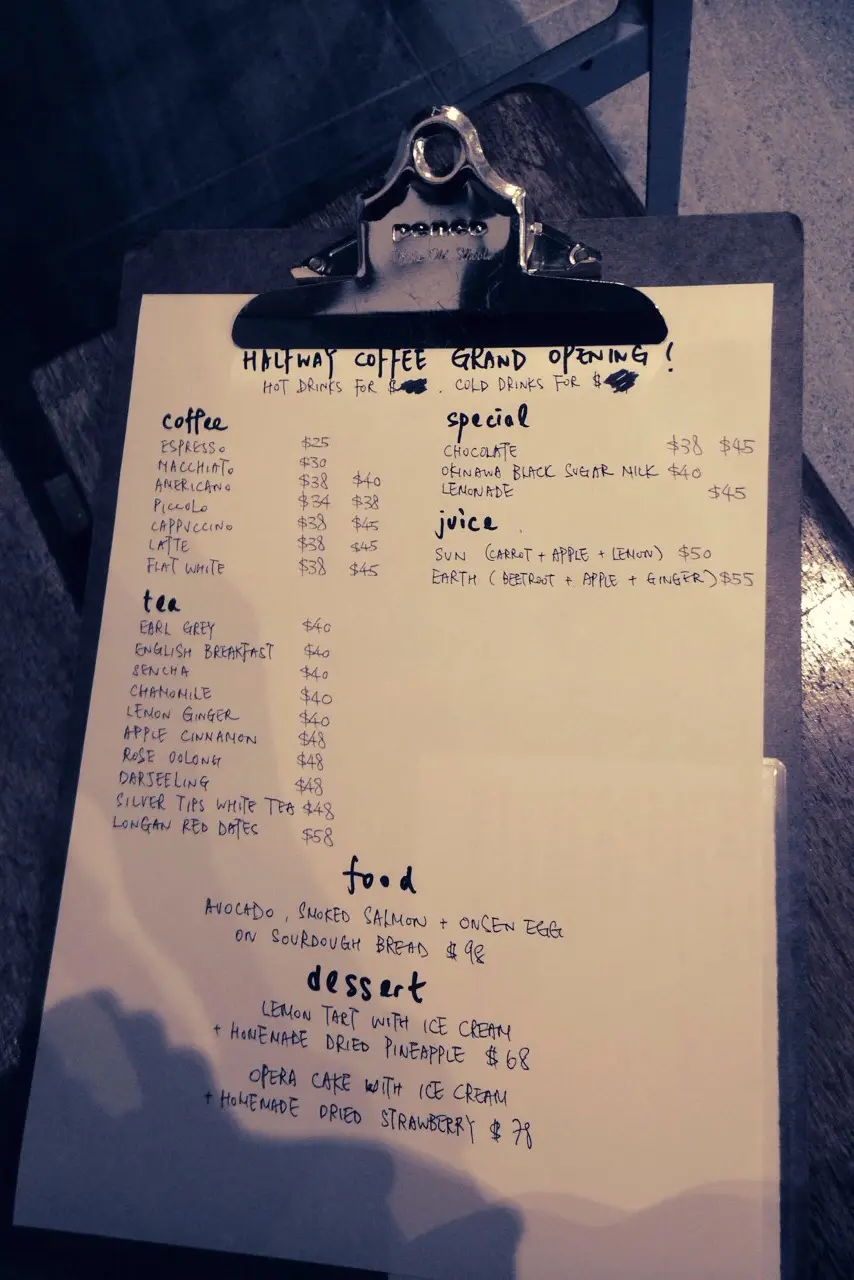 penco
HALFWAY COFFEE GRAND OPENING !
HOT DRINKS FOR $ . COLD DRINKS FOR $
coffee
ESPRESSO $25
MACCHIATO $30
AMERICANO $38 $40
PICCOLO $34 $38
CAPPUCCINO $38 $45
LATTE $38 $45
FLAT WHITE $38 $45
tea
EARL GREY $40
ENGLISH BREAKFAST $40
SENCHA $40
CHAMOMILE $40
LEMON GINGER $40
APPLE CINNAMON $48
ROSE OOLONG $48
DARJEELING $48
SILVER TIPS WHITE TEA $48
LONGAN RED DATES $58
special
CHOCOLATE $38 $45
OKINAWA BLACK SUGAR MILK $40
LEMONADE $45
juice
SUN (CARROT + APPLE + LEMON) $50
EARTH (BEETROOT + APPLE + GINGER) $55
food
AVOCADO, SMOKED SALMON + ONSEN EGG
ON SOURDOUGH BREAD $98
dessert
LEMON TART WITH ICE CREAM
+ HOMEMADE DRIED PINEAPPLE $68
OPERA CAKE WITH ICE CREAM
+ HOMEMADE DRIED STRAWBERRY $78